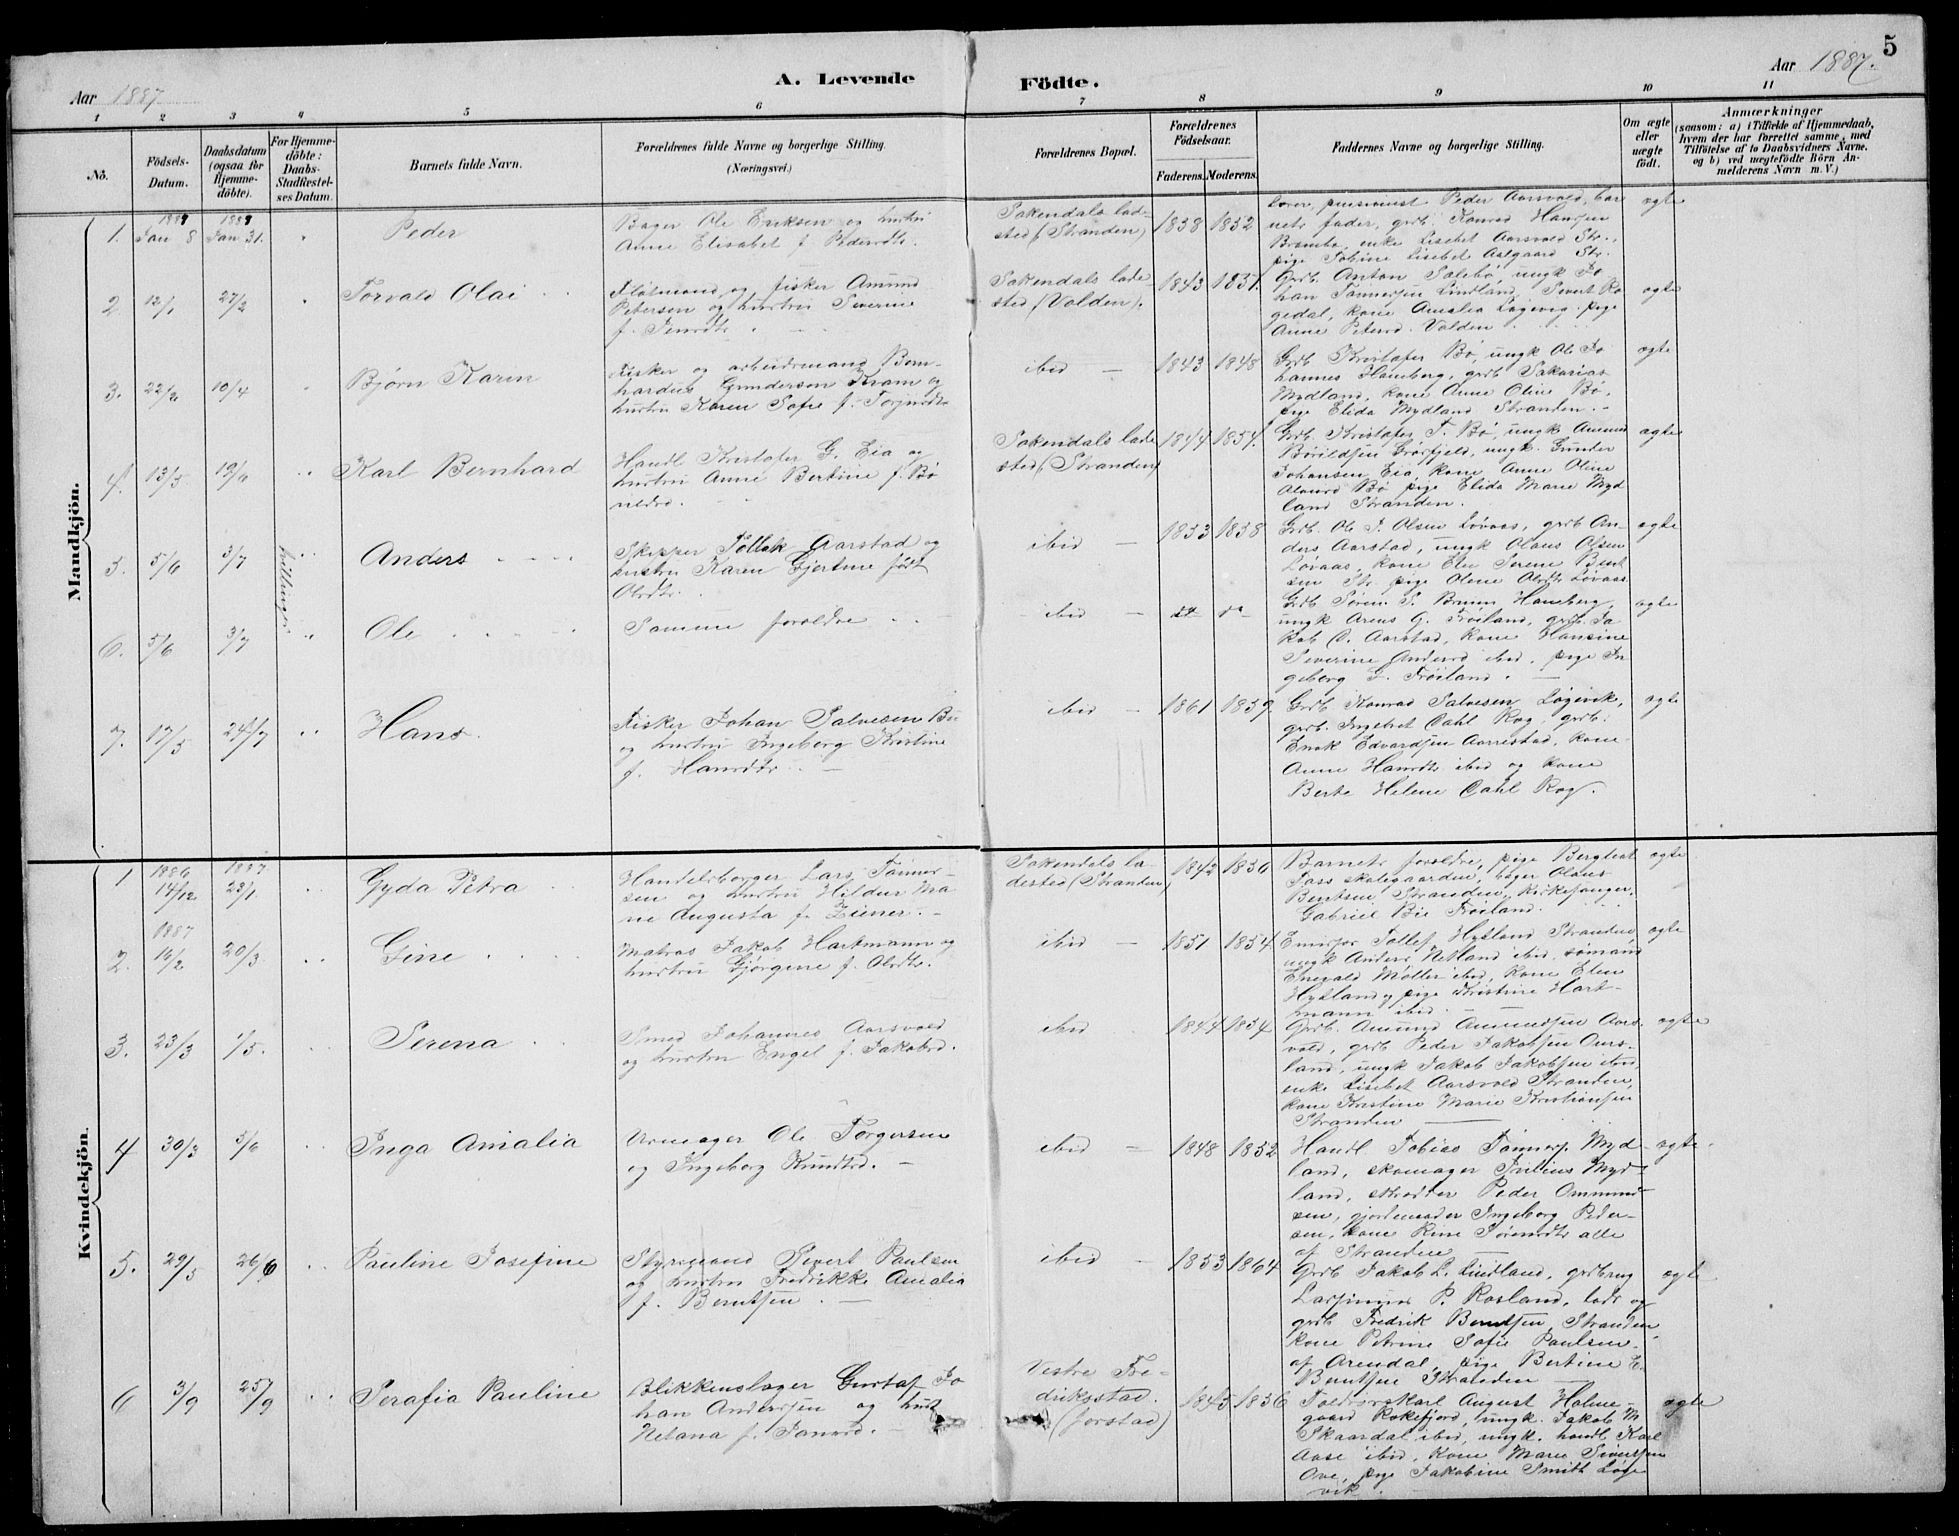 5
Aar 1887
A. Levende
Födte.
Aar 1887.
1 2 3 4 5 6 7 8 9 10 11
No.
Födsels-
Datum.
Daabsdatum
(ogsaa for
Hjemme-
döbte).
For Hjemme-
döbte:
Daabs-
Stadfæstel-
ses Datum.
Barnets fulde Navn.
Forældrenes fulde Navne og borgerlige Stilling.
(Næringsvei.)
Forældrenes Bopæl.
Forældrenes
Födselsaar.
Faderens. Moderens.
Faddernes Navne og borgerlige Stilling.
Om ægte
eller
uægte
født.
Anmærkninger
(saasom: a) i Tilfælde af Hjemmedaab,
hvem der har forrettet samme, med
Tilföielse af to Daabsvidners Navne.
og b) ved uægtefödte Börn An-
melderens Navn m. V.)
Mandkjön.
1. Jan 8 Jan 31. Peder
Bager Ole Eriksen og hustru
Anne Elisabet f. Pedersdtr.
Sokendals lad-
sted (Stranden)
1838 1852
lærer, pensionist Peder Aarsvold, bar
nets fader, grdb. Konrad Hansen
enke Lisebet Aarsvold Str.,
pige Tobine Lisebet Aslgaard Str.
ægte
2 12/1 27/2 Torvald Olai
og fisker Amund
Petersen og hustru Severine
f. Jensdtr.
Sokendals lade
sted (Valden).
1843 1851.
Grdb. Anton Salebø, ungk. Jo
han Tønnesen Lindland, Sivert Ro
gedal, kone Amalia Løgevig, pige
Anne Petersd. Valden
ægte
3. 22/2 10/4 Bjørn Karin
Fisker og arbeidsmand Bern-
hardus Gundersen Kram og
hustru Karen Sofie f. Torjusdtr.
ibid
1843 1848
Grdb Kristofer Bø, ungk Ole Jo
hannes Hamberg, grdb Sakarias
Mydland, kone Anne Oline Bø,
pige Elida Mydland Stranden.
ægte
4. 13/5 19/6 Karl Bernhard
Handl Kristofer G. Eia og
hustru Anne Bertine f. Bø
rildsd.
Sokendals lade
sted (Stranden)
1844 1854.
Grdb. Kristofer T. Bø, ungk Amund
Børildsen ungk. Gunder
Johansen Eia, kone Anne Oline
Bø pige Elida Marie Myd
land Stranden.
ægte
5. 5/6 3/7 tvillinger Anders
Skipper Tollak Aarstad og
hustru Karen Gjertine født
Olsdtr.
ibid
1833 1838
Grdb. Ole T. Olsen Løvaas, grdb An-
ders Aarstad, ungk Olaus Olsen
Løvaas, kone Elen Serene Bent
sen Str. pige Olene Olsdtr Løvaas
ægte
6. 5/6 3/7 Ole
Samme forældre
ibid
do do
Grdb Søren S. Bruun Hamberg,
ungk Arens G. Frøiland, grdb. Ja
kob C. Aarstad, kone Hansine
Severine Andersd ibid, pige In
geborg L. Frøiland.
ægte
7. 17/5 24/7 Hans
Fisker Johan Salvesen Bu
og hustru Ingeborg Kristine
f. Hansdtr.
ibid
1861 1859.
Grdb Konrad Salvesen Løgivik,
grdb. Ingebret Cahl Rog, grdb.
Enok Edvardsen Aarrestad, kone
Anne Hansdtr ibid og kone
Berte Helene Cahl Rog.
ægte
Kvindekjön.
1 1886 14/12 1887 23/1. Gyda Petra
Handelsborger Lars Tønnes-
sen og hustru Hildur Ma
rie Augusta f. Ziener.
Sokendals la-
dested (Stranden)
1842 1856
Barnets forældre, pige
Tass skolegaarden, bager Olaus
Bentsen Stranden, kirkesanger
Gabriel Bie Frøiland.
ægte
1887
2. 16/2 20/3 Gine
Matros Jakob Hartmann og
hustru Gjørgine f. Olsdtr.
ibid
1851 1854.
Tollef Hylland Stranden
ungk Anders Netland ibid, sømand
Enevald Møller ibid, kone Elen
Hylland, pige Kristine Hart-
mann ibid.
ægte
3. 23/3 1/5. Serena
Smed Johannes Aarsvold
og hustru Engel f. Jakobsd.
ibid
1844 1854
Grdb. Amund Amundsen Aars-
vold, grdb Peder Jakobsen Ours-
land, ungk Jakob Jakobsen ibid
enke Lisebet Aarsvold Stranden,
kone Kristine Marie Kristiansen
Stranden
ægte
4 30/3 5/6 Inga Amalia
Urmager Ole Torgersen
og Ingeborg Knudsd.
ibid
1848 1852
Handl Tobias Tønnes. Myd
land, skomager Myd-
land, skrædder Peder Ommund-
sen, gjordemoder Ingeborg Peder-
sen, kone Rine Sørensdtr alle
af Stranden
ægte
5. 29/5 26/6 Pauline Josefine
Styrmand Sivert Paulsen
og hustru Fredrikke Amalia
f. Berntsen.
ibid
1853 1864
Grdb Jakob L. Lindland, grdbrug
P. Rosland, lods og
grdb Fredrik Berntsen Stranden,
kone Petrine Sofie Paulsen
af Arendal, pige Bertine E.
Berntsen Stranden
ægte
6 3/9 25/9 Serafia Pauline
Blikkenslager Gustaf Jo
han Andersen og hust
Netana f. Jansd.
Vestre Fre-
drikstad.
(forstad)
1845 1856
August Holme-
gaard Rekefjord, ungk. Jakob M
Skaardal ibid, ungk. handl Karl
Aase ibid, kone Marie Sivertsen
Ove, pige Jakobine Smith Løge
vik.
ægte